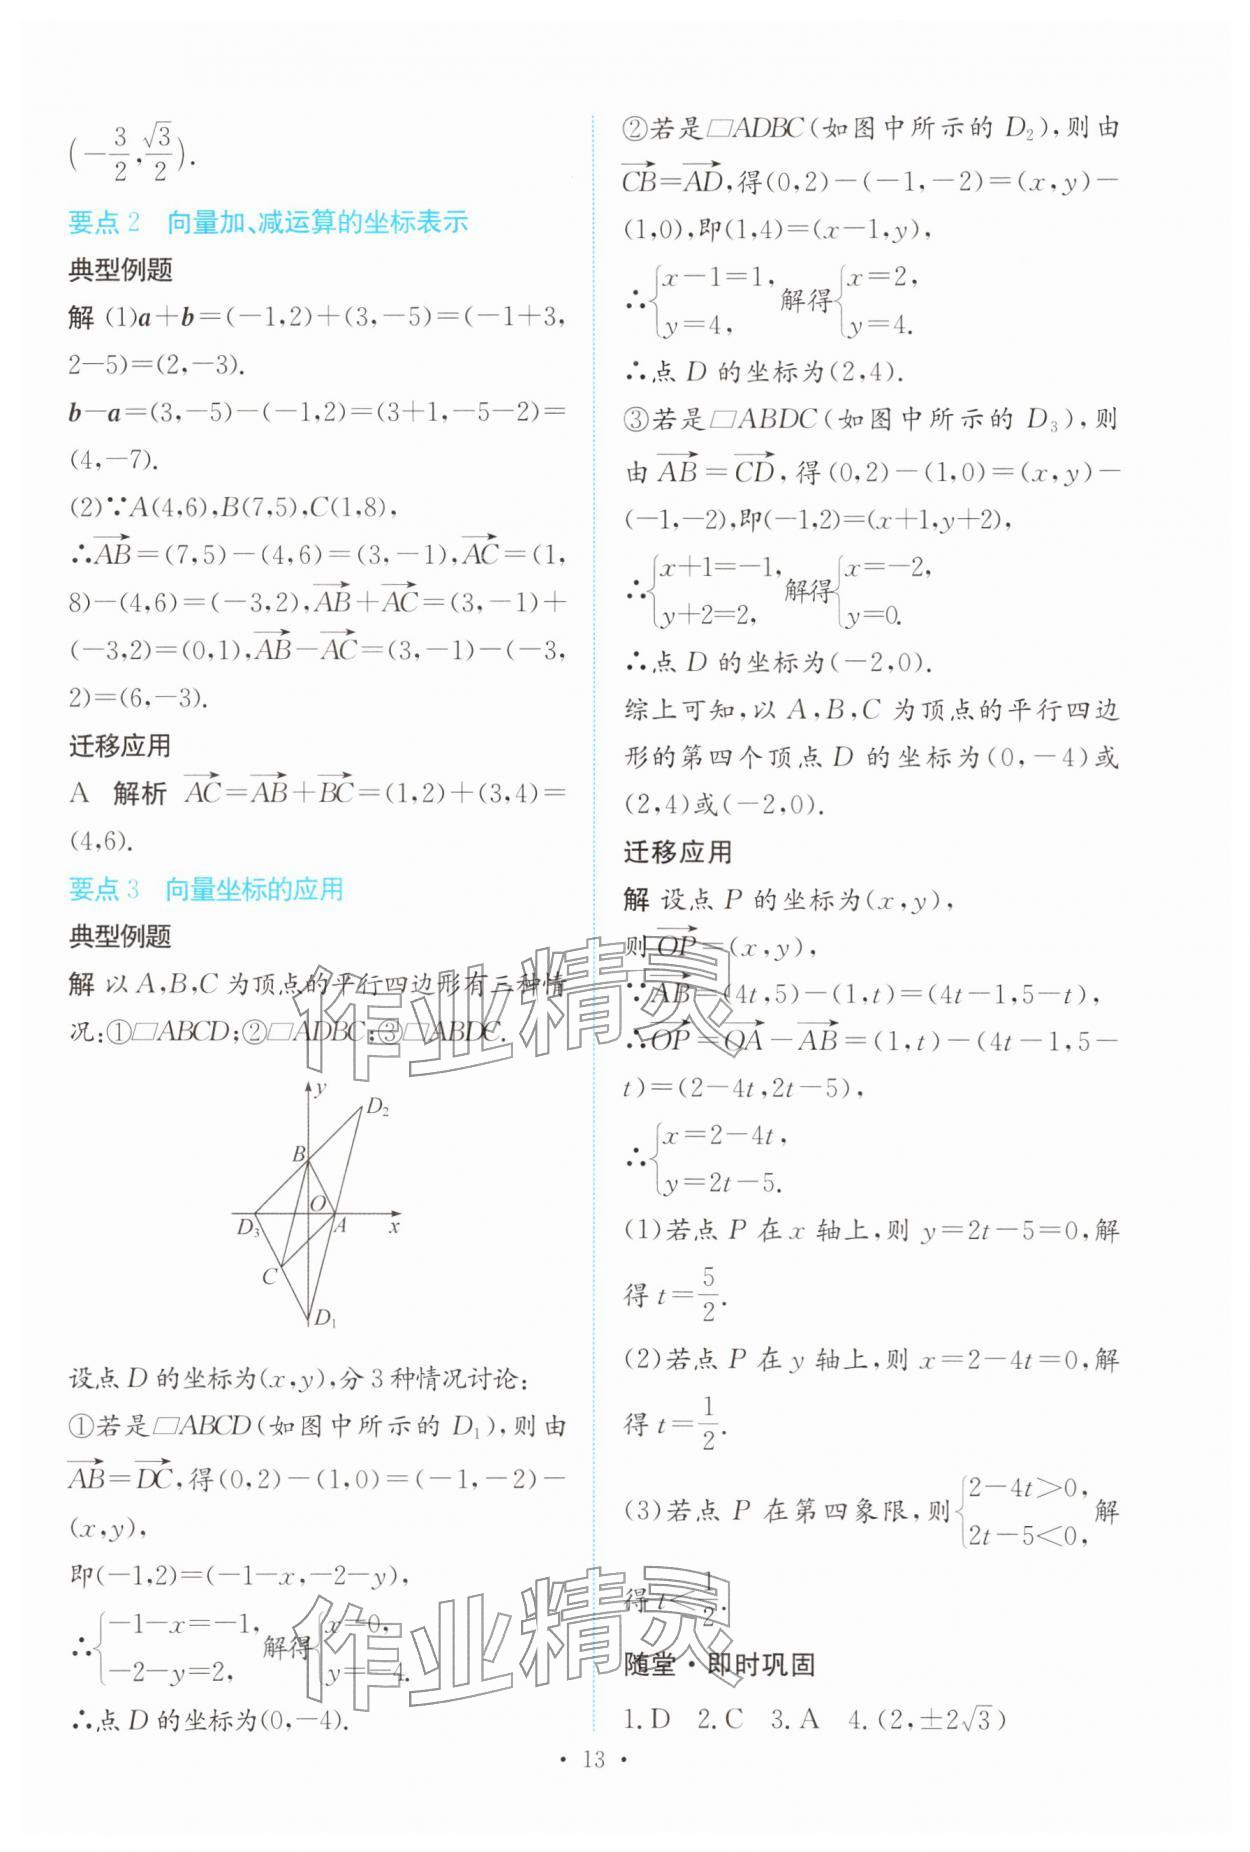 (-3/2, √3/2).
要点2 向量加、减运算的坐标表示
典型例题
解 (1)a+b=(-1,2)+(3,-5)=(-1+3,
2-5)=(2,-3).
b-a=(3,-5)-(-1,2)=(3+1,-5-2)=
(4,-7).
(2)∵A(4,6),B(7,5),C(1,8),
∴AB→=(7,5)-(4,6)=(3,-1),AC→=(1,
8)-(4,6)=(-3,2),AB→+AC→=(3,-1)+
(-3,2)=(0,1),AB→-AC→=(3,-1)-(-3,
2)=(6,-3).
迁移应用
A 解析 AC→=AB→+BC→=(1,2)+(3,4)=
(4,6).
要点3 向量坐标的应用
典型例题
解 以A,B,C为顶点的平行四边形有三种情
况:①□ABCD;②□ADBC;③□ABDC.
y
D₂
B
O
D₃
A
x
C
D₁
设点D的坐标为(x,y),分3种情况讨论:
①若是□ABCD(如图中所示的D₁),则由
AB→=DC→,得(0,2)-(1,0)=(-1,-2)-
(x,y),
即(-1,2)=(-1-x,-2-y),
∴{-1-x=-1, -2-y=2, 解得{x=0, y=-4.
∴点D的坐标为(0,-4).
②若是□ADBC(如图中所示的D₂),则由
CB→=AD→,得(0,2)-(-1,-2)=(x,y)-
(1,0),即(1,4)=(x-1,y),
∴{x-1=1, y=4, 解得{x=2, y=4.
∴点D的坐标为(2,4).
③若是□ABDC(如图中所示的D₃),则
由AB→=CD→,得(0,2)-(1,0)=(x,y)-
(-1,-2),即(-1,2)=(x+1,y+2),
∴{x+1=-1, y+2=2, 解得{x=-2, y=0.
∴点D的坐标为(-2,0).
综上可知,以A,B,C为顶点的平行四边
形的第四个顶点D的坐标为(0,-4)或
(2,4)或(-2,0).
迁移应用
解 设点P的坐标为(x,y),
则OP→=(x,y),
∵AB→=(4t,5)-(1,t)=(4t-1,5-t),
∴OP→=OA→-AB→=(1,t)-(4t-1,5-
t)=(2-4t,2t-5),
∴{x=2-4t, y=2t-5.
(1)若点P在x轴上,则y=2t-5=0,解
得t=5/2.
(2)若点P在y轴上,则x=2-4t=0,解
得t=1/2.
(3)若点P在第四象限,则{2-4t>0, 2t-5<0, 解
得t<1/2.
随堂·即时巩固
1.D 2.C 3.A 4.(2,±2√3)
·13·
作业精灵
作业精灵